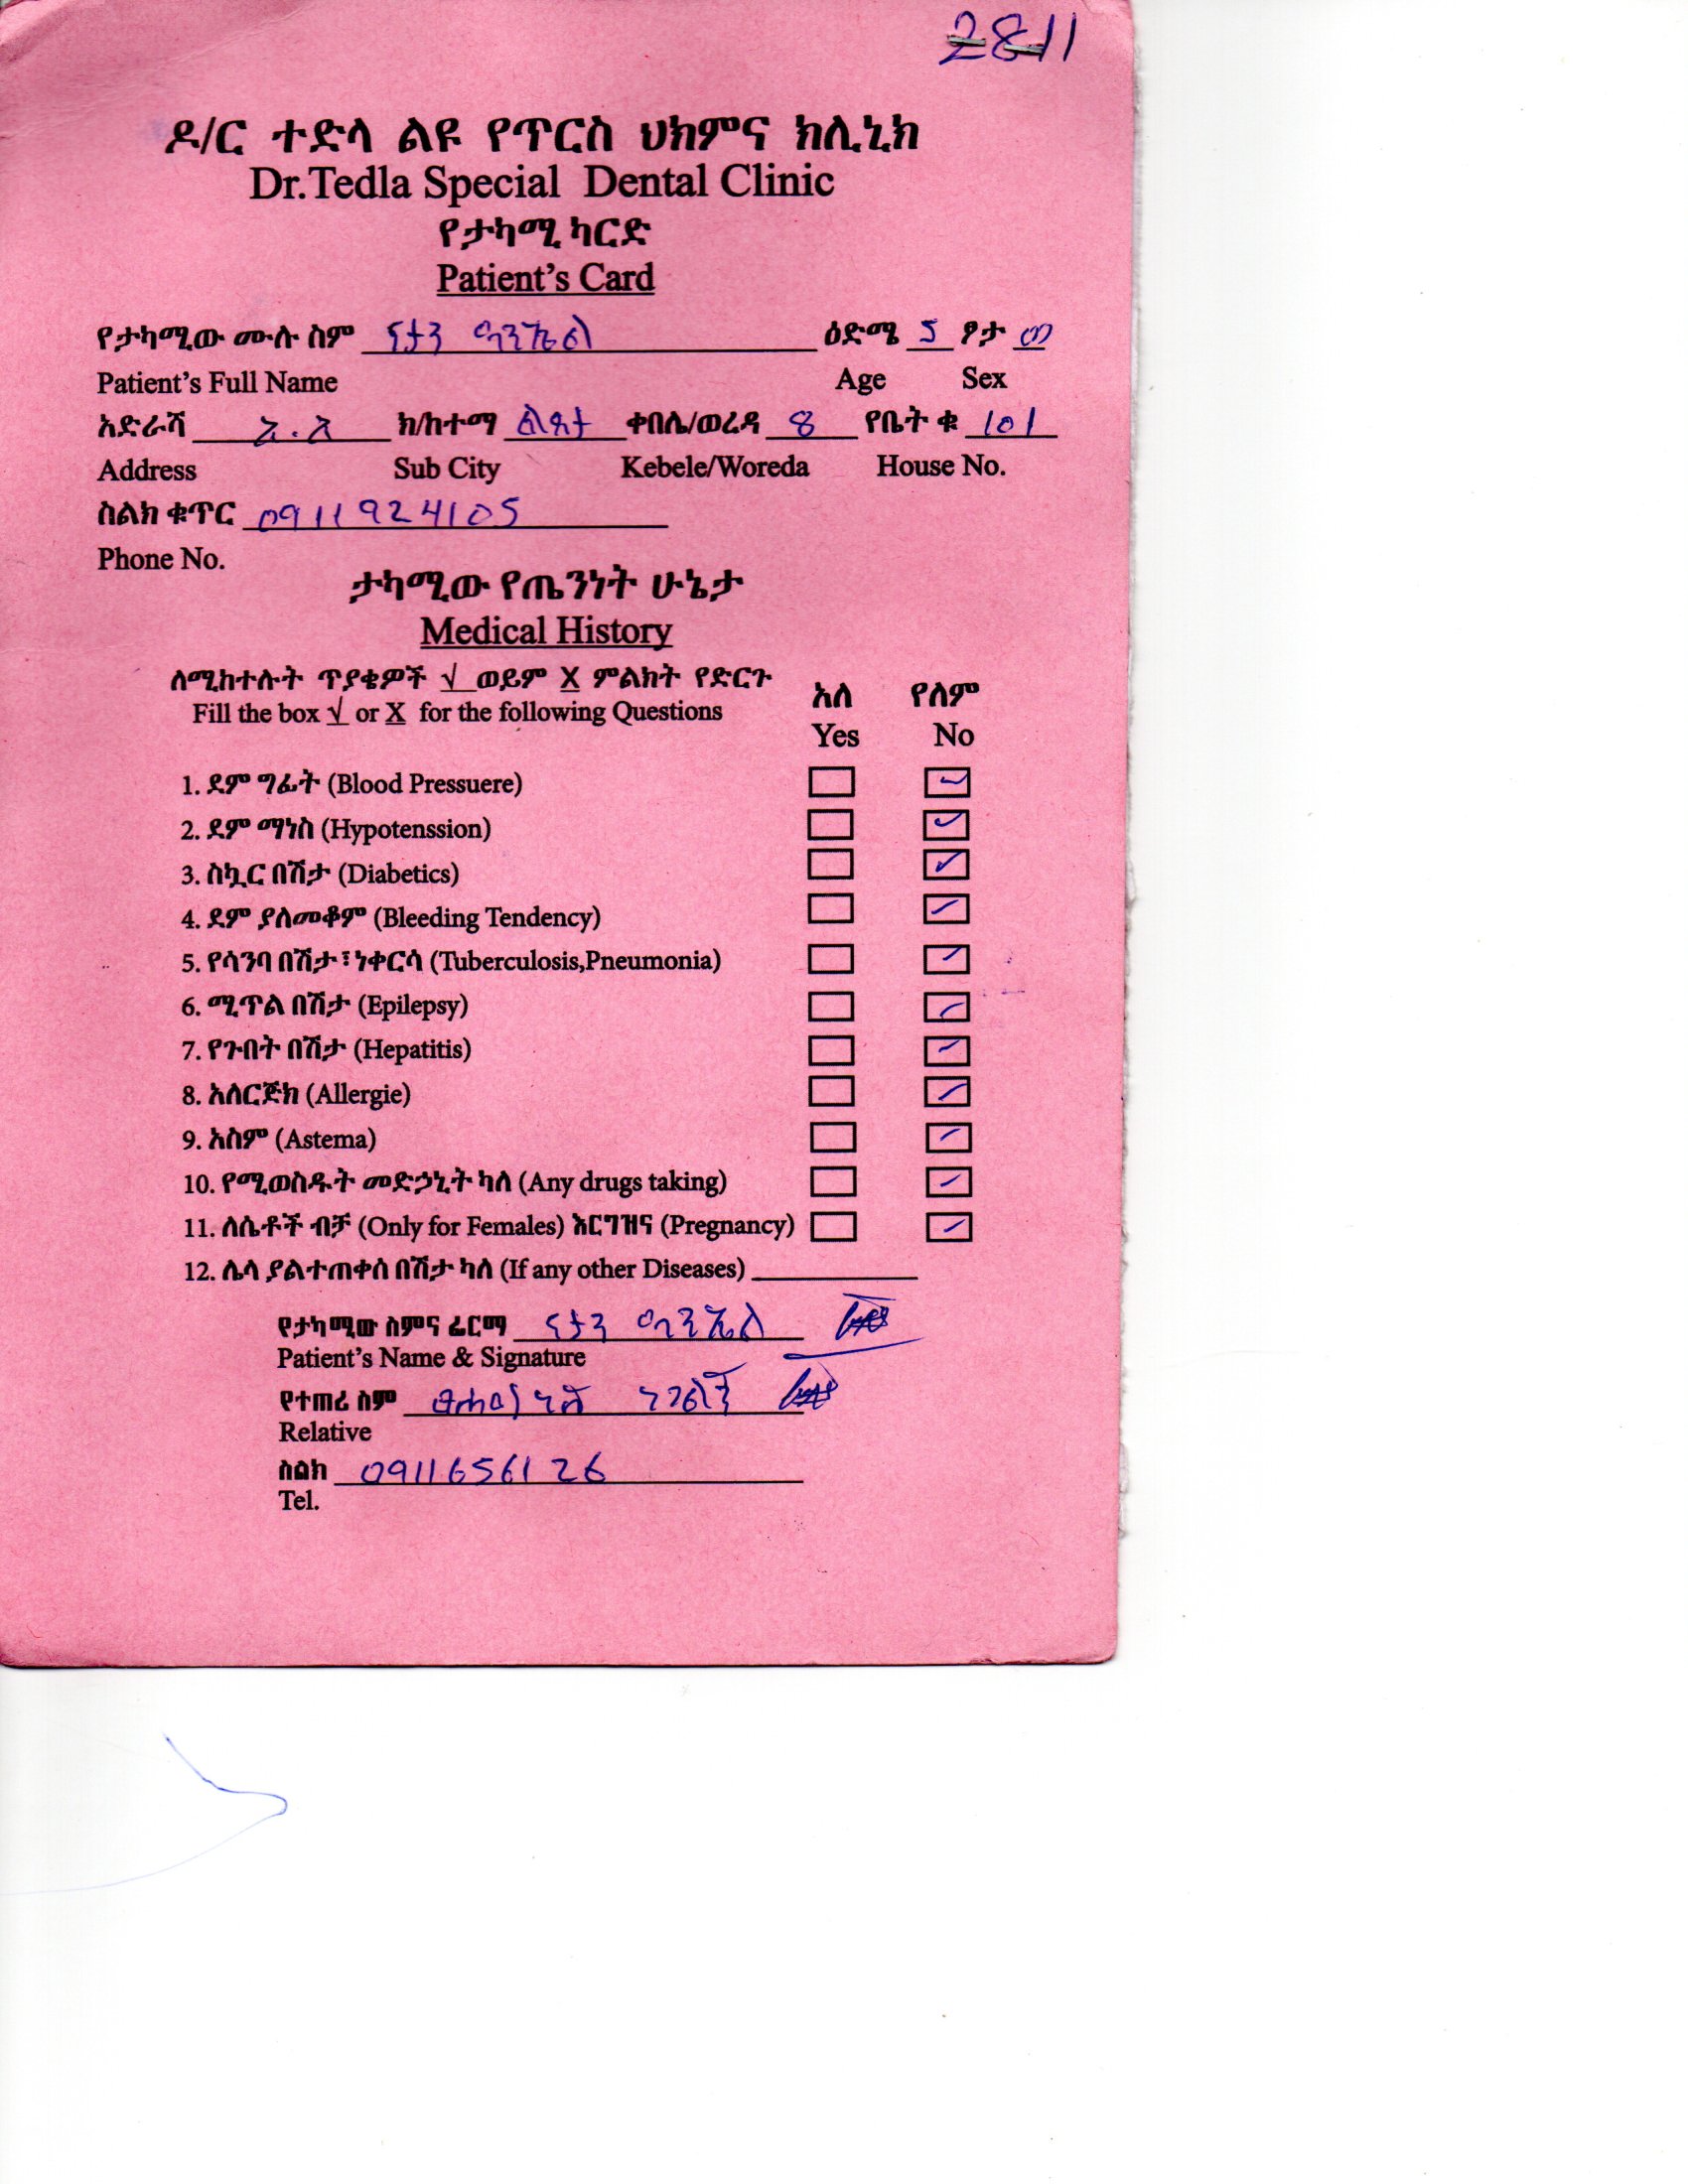 2811
ዶ/ር ተድላ ልዩ የጥርስ ህክምና ክሊኒክ
Dr.Tedla Special Dental Clinic
የታካሚ ካርድ
Patient's Card
የታካሚው ሙሉ ስም ናታን ዳንኤል ዕድሜ 5 ፆታ ወ
Patient's Full Name Age Sex
አድራሻ አ.አ ክ/ከተማ ልደታ ቀበሌ/ወረዳ 8 የቤት ቁ 101
Address Sub City Kebele/Woreda House No.
ስልክ ቁጥር 0911924105
Phone No.
ታካሚው የጤንነት ሁኔታ
Medical History
ለሚከተሉት ጥያቄዎች √ ወይም X ምልክት የድርጉ
Fill the box √ or X for the following Questions
አለ የለም
Yes No
1. ደም ግፊት (Blood Pressuere)
2. ደም ማነስ (Hypotenssion)
3. ስኳር በሽታ (Diabetics)
4. ደም ያለመቆም (Bleeding Tendency)
5. የሳንባ በሽታ፣ነቀርሳ (Tuberculosis,Pneumonia)
6. ሚጥል በሽታ (Epilepsy)
7. የጉበት በሽታ (Hepatitis)
8. አለርጅክ (Allergie)
9. አስም (Astema)
10. የሚወስዱት መድኃኒት ካለ (Any drugs taking)
11. ለሴቶች ብቻ (Only for Females) እርግዝና (Pregnancy)
12. ሌላ ያልተጠቀሰ በሽታ ካለ (If any other Diseases)
የታካሚው ስምና ፊርማ ናታን ዳንኤል
Patient's Name & Signature
የተጠሪ ስም
Relative
ስልክ 0911656126
Tel.